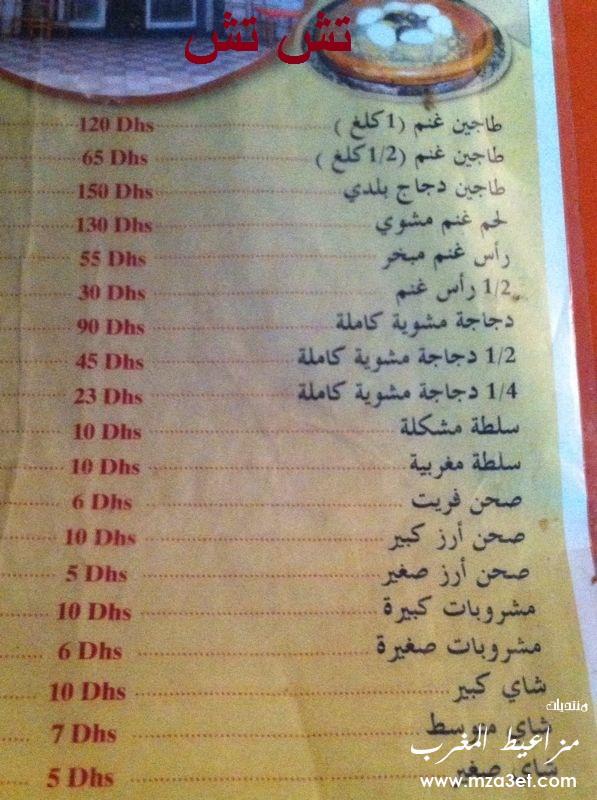 تش تش
طاجين غنم (1 كلغ) 120 Dhs
طاجين غنم (1/2 كلغ) 65 Dhs
طاجين دجاج بلدي 150 Dhs
لحم غنم مشوي 130 Dhs
رأس غنم مبخر 55 Dhs
1/2 رأس غنم 30 Dhs
دجاجة مشوية كاملة 90 Dhs
1/2 دجاجة مشوية كاملة 45 Dhs
1/4 دجاجة مشوية كاملة 23 Dhs
سلطة مشكلة 10 Dhs
سلطة مغربية 10 Dhs
صحن فريت 6 Dhs
صحن أرز كبير 10 Dhs
صحن أرز صغير 5 Dhs
مشروبات كبيرة 10 Dhs
مشروبات صغيرة 6 Dhs
شاي كبير 10 Dhs
شاي متوسط 7 Dhs
شاي صغير 5 Dhs
منتديات
مزاعيط المغرب
www.mza3et.com